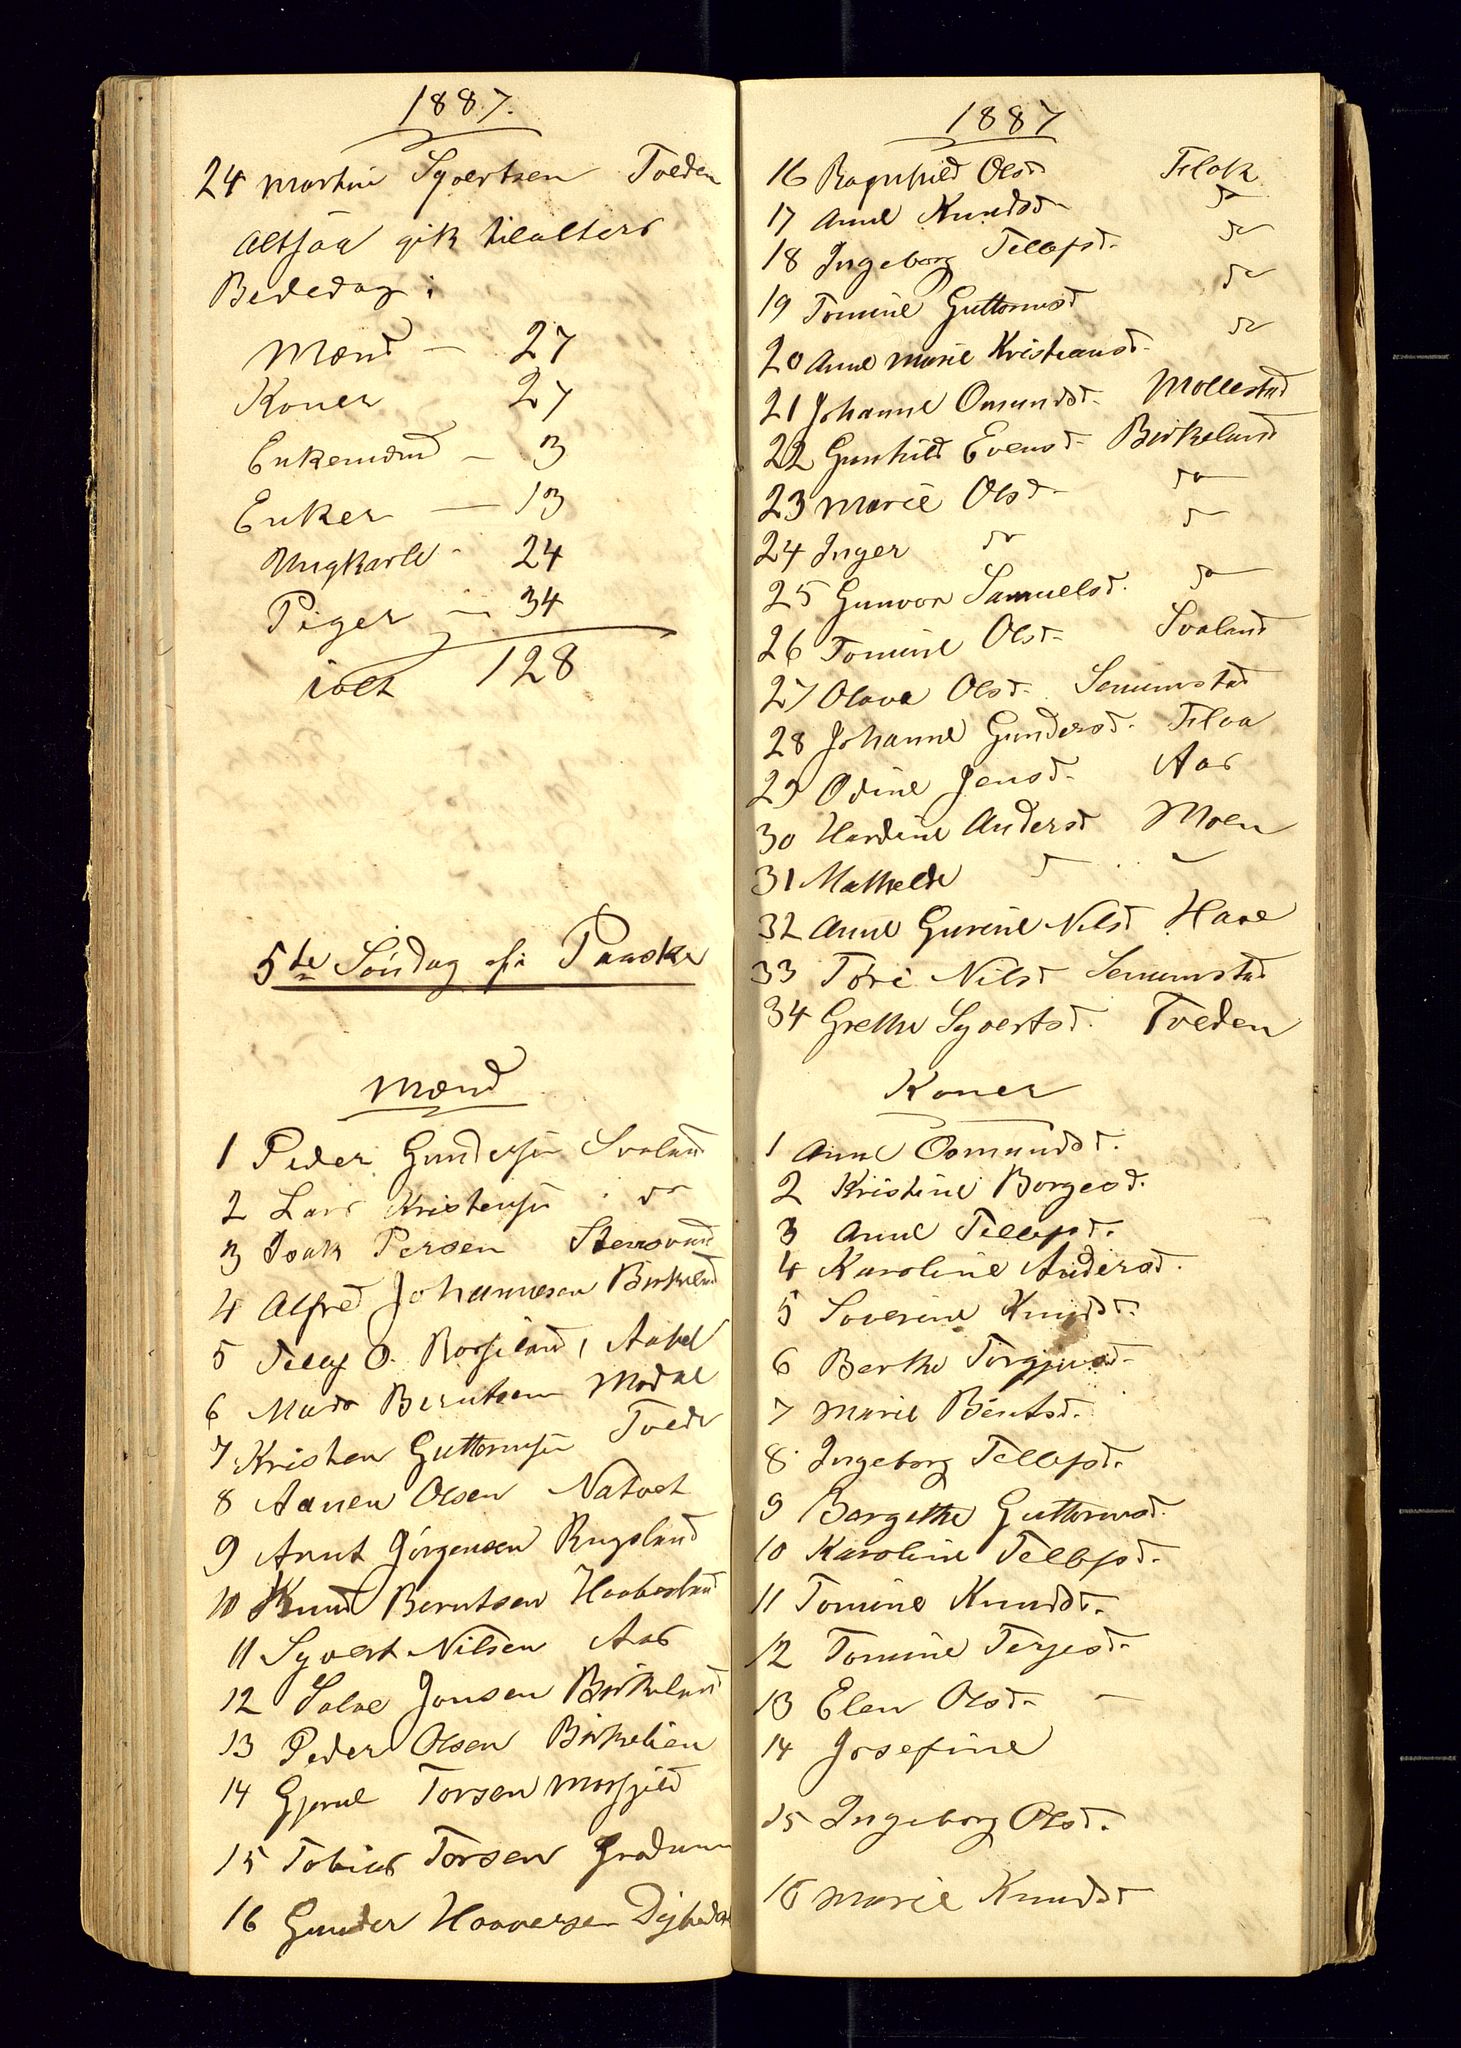 1887.
24 Martin Syvertsen Tveden
Altsaa gik tilalters
Bededag:
Mænd — 27
Koner 27
Enkemænd — 3
Enker — 13
Ungkarle - 24
Piger — 34
ialt 128
5te Søndag efr Paaske
Mænd
1 Peder Gundersen Svaland
2 Lars Kristensen do
3 Isak Persen
4 Alfred Johannesen Birkeland
5 Tellef O. Aabel
6 Mads Berntsen Modal
7 Kristen Guttormsen Tvede
8 Aanen Olsen Natvet
9 Arnt Jørgensen Rugsland
10 Knud Berntsen Haabesland
11 Syvert Nilsen Aas
12 Salve Jensen Birkeland
13 Peder Olsen Birkelien
14 Torsen
15 Tobias Torsen
16 Gunder Haaversen
1887
16 Ragnhild Olsd Flak
17 Anne Knudsd do
18 Ingeborg Tellefsd. do
19 Tomine Guttormsd do
20 Anne Marie Kristiansd. do
21 Johanne Omundsd. Mollestad
22 Gunhild Evensd. Birkeland
23 Marie Olsd. do
24 Inger do do
25 Gunvor Samuelsd. do
26 Tomine Olsd. Svaland
27 Olava Olsd. Senumstad
28 Johanne Gundersd. Flaa
29 Odine Jensd. Aas
30 Hardine Andersd Moen
31 Mathilde
32 Anne Gurine Nilsd Have
33 Tore Nilsd Senumstad
34 Grethe Syvertsd. Tveden
Koner
1 Anne Osmundsd.
2 Kristine Borgesd.
3 Anne Tellefsd.
4 Karoline Andersd.
5 Severine Knudsd.
6 Berthe Torgjusd.
7 Marie Bentsd.
8 Ingeborg Tellefsd.
9 Borgithe Guttormsd.
10 Karoline Tellefsd.
11 Tomine Knudsd.
12 Tomine Terjesd.
13 Elen Olsd. —
14 Josefine
15 Ingeborg Olsd.
16 Marie Knudsd